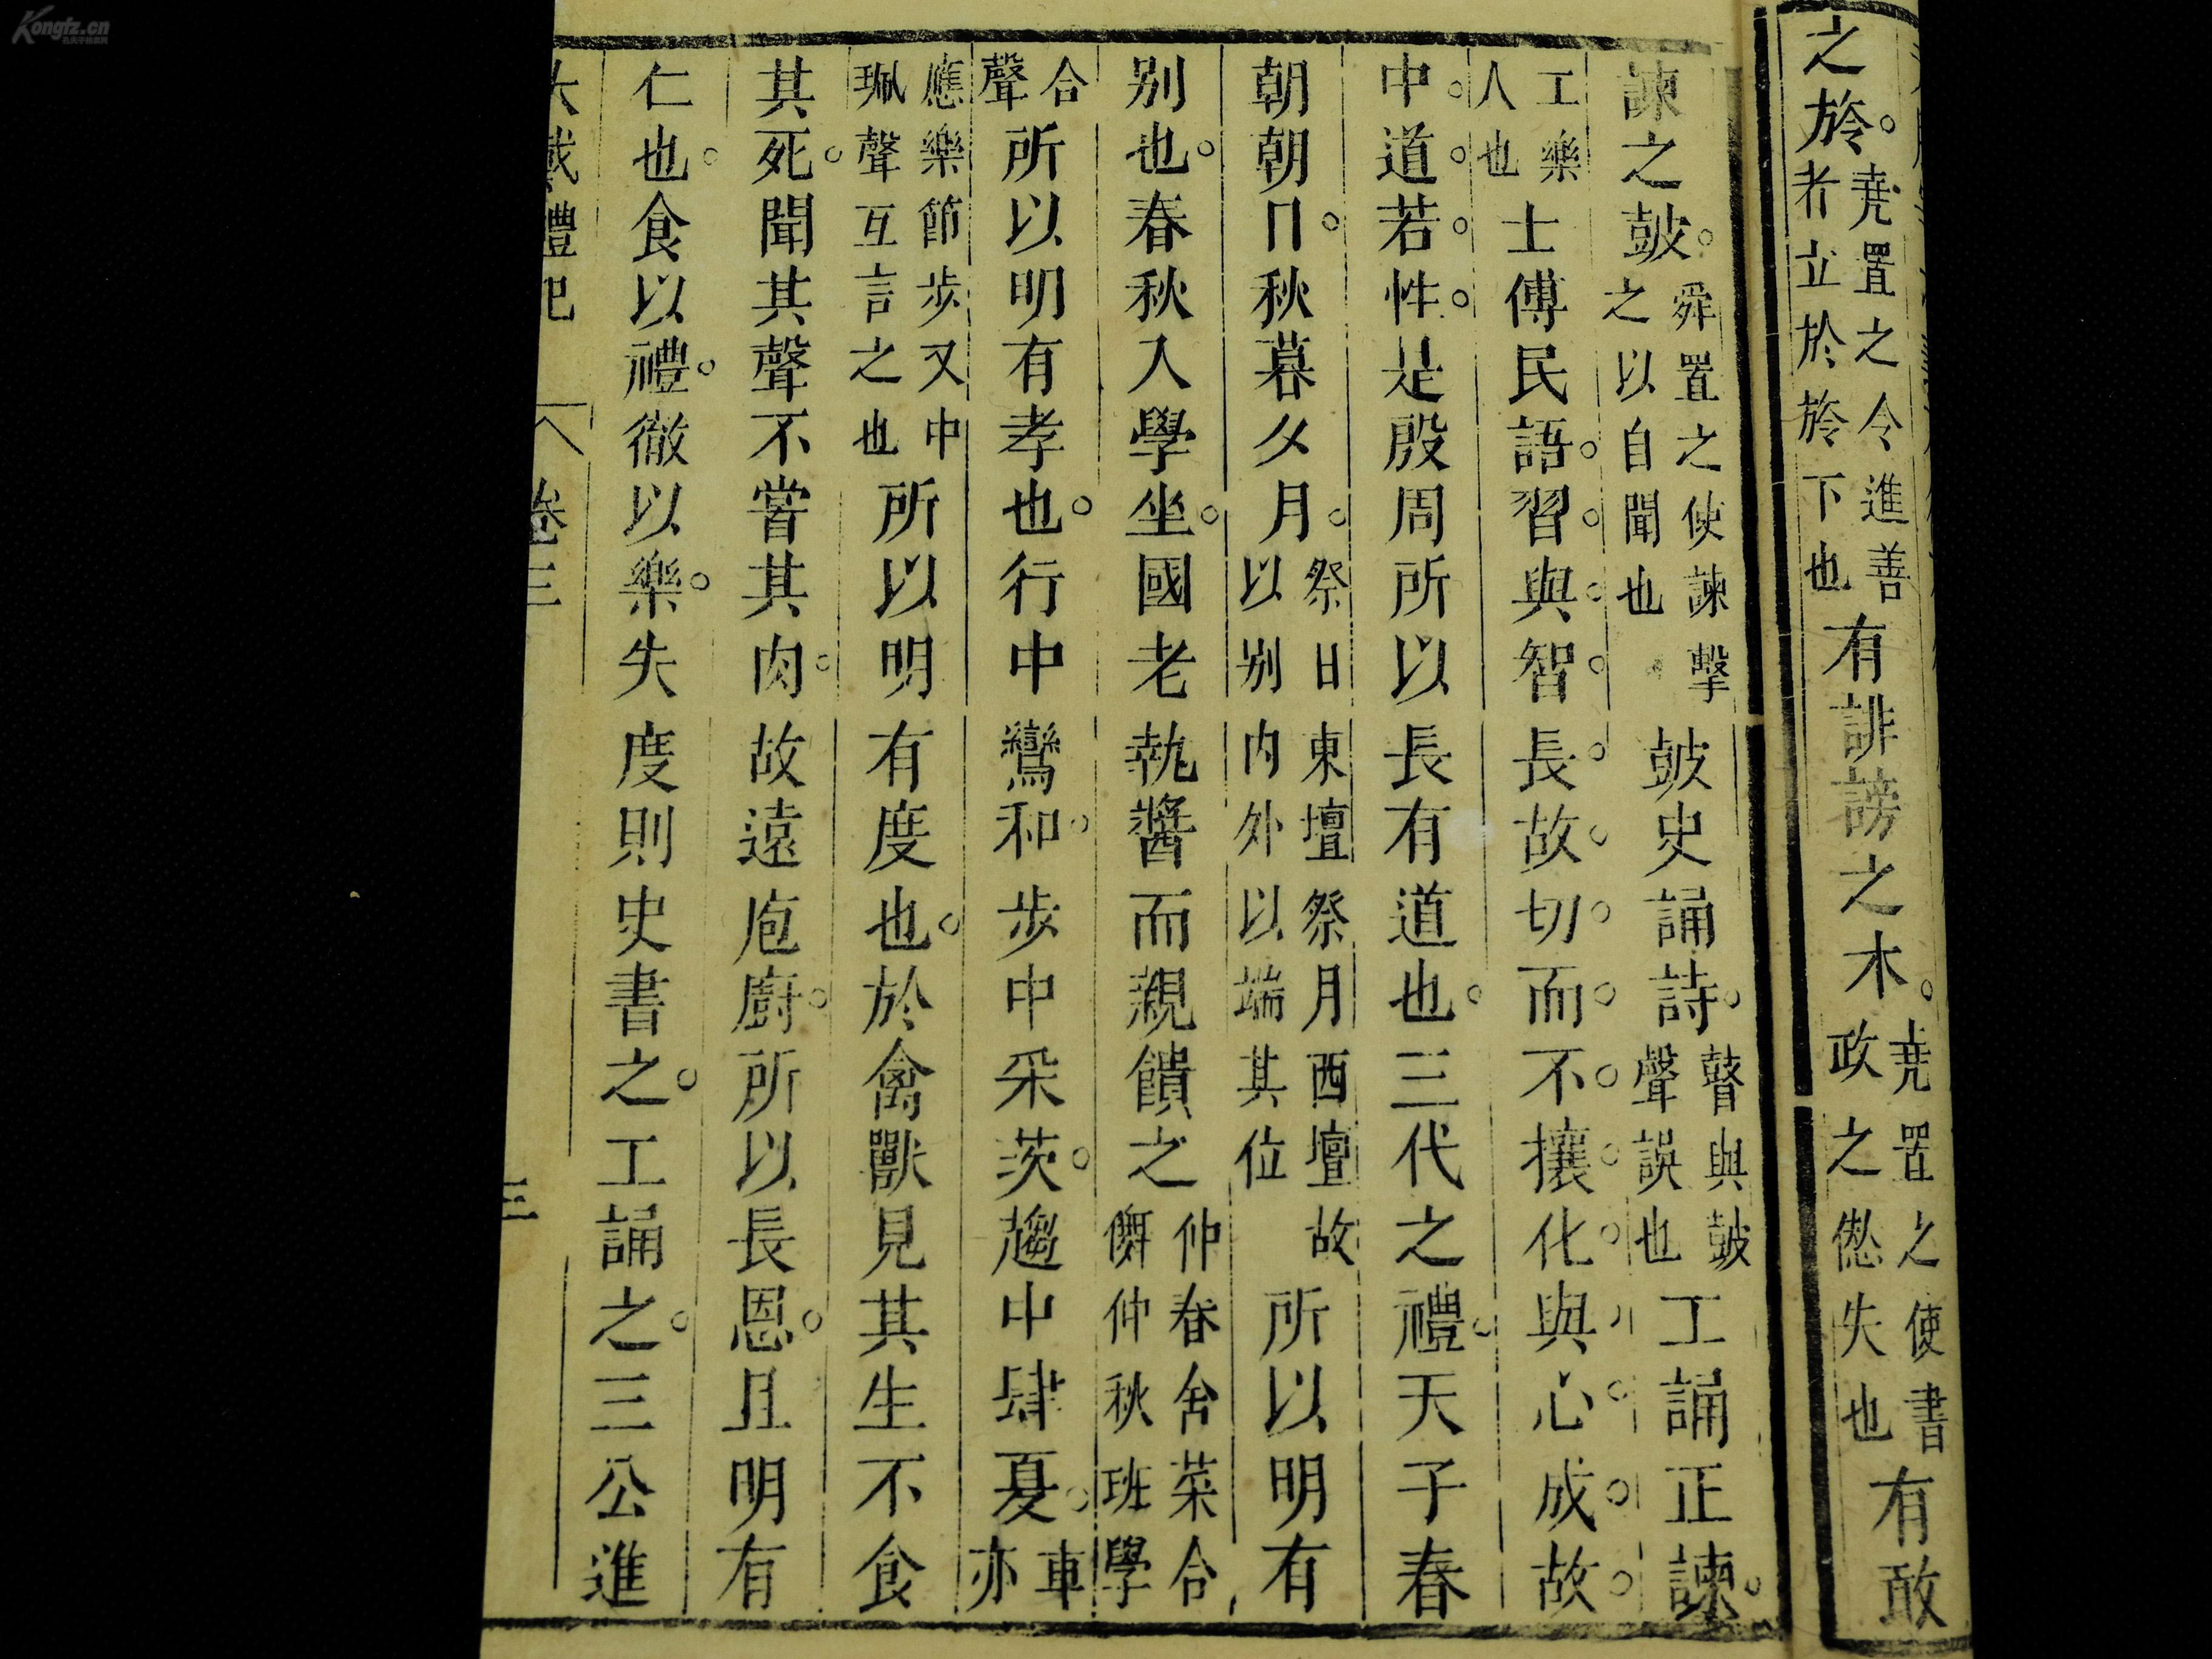 之旍。堯置之令進善者立於旍下也有誹謗之木。堯置之使書政之愆失也有敢
諫之皷。舜置之使諫擊之以自聞也皷史誦詩。瞽與皷聲誤也工誦正諫。
工樂人也士傅民語。習。與。智。長。故。切。而。不。攘。化。與。心。成。故。
中。道。若。性。是殷周所以長有道也。三代之禮。天子春
朝朝日。秋暮夕月。祭日東壇祭月西壇故以別內外以端其位所以明有
別也。春秋入學坐。國老執醬而親饋之仲春舍菜合儛仲秋班學
合聲所以明有孝也。行中鸞和。步中采茨。趨中肆夏。車亦
應樂節步又中珮聲互言之也所以明有度也。於禽獸見其生不食
其死。聞其聲不嘗其肉。故遠庖廚。所以長恩。且明有
仁也。食以禮。徹以樂。失度則史書之。工誦之。三公進
大戴禮記 卷三 三
Kongfz.cn